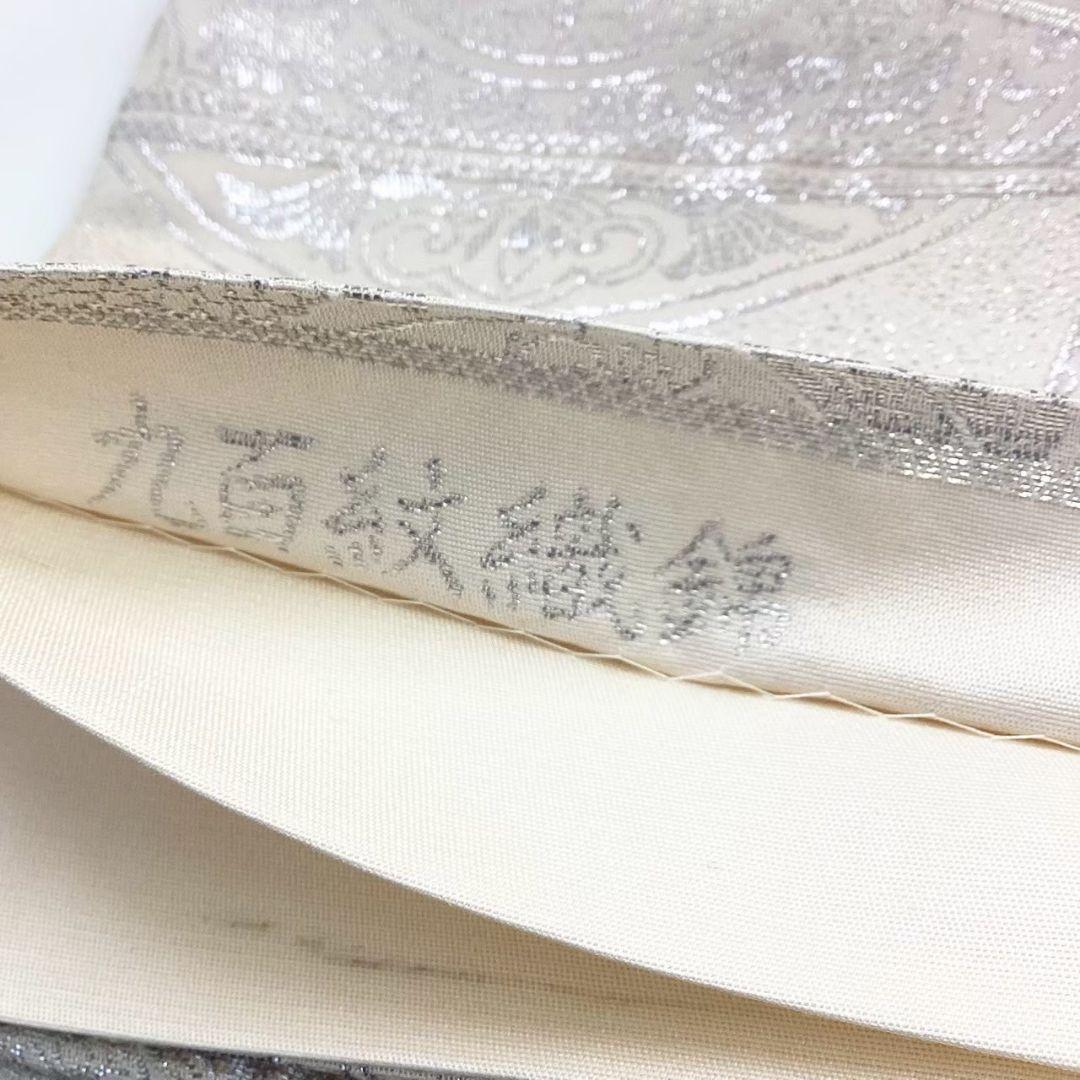 九百紋織錦